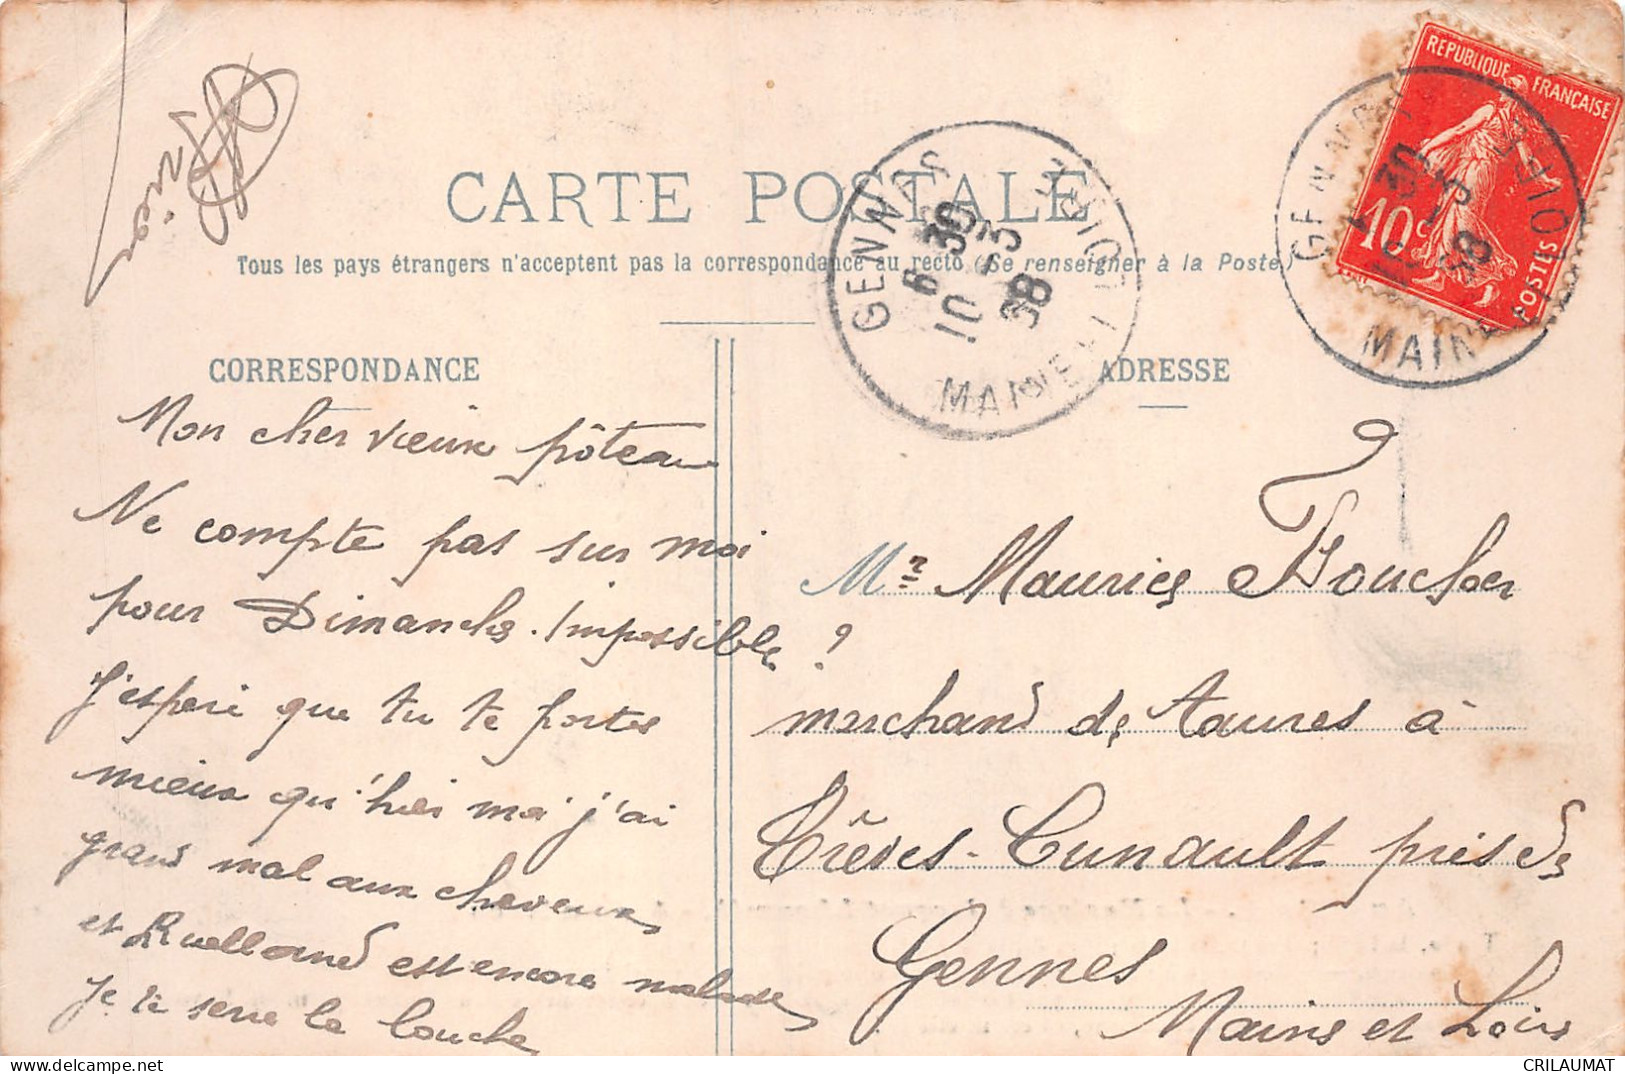 CARTE POSTALE
Tous les pays étrangers n'acceptent pas la correspondance au recto (Se renseigner à la Poste)
CORRESPONDANCE
Mon cher vieux pôteau
Ne compte pas sur moi
pour Dimanche. Impossible ?
J'espere que tu te portes
mieux qu'hier moi j'ai
grand mal aux cheveux
et Ruelland est encore malade
Je te serre la louche
ADRESSE
Mr Maurice Boucher
marchand de Taures à
Trèves-Cunault près de
Gennes
Maine et Loire
REPUBLIQUE FRANÇAISE
10c
POSTES
GENNES
MAINE
GENNES
6 30
10 -3
38
MAINE
CRILAUMAT